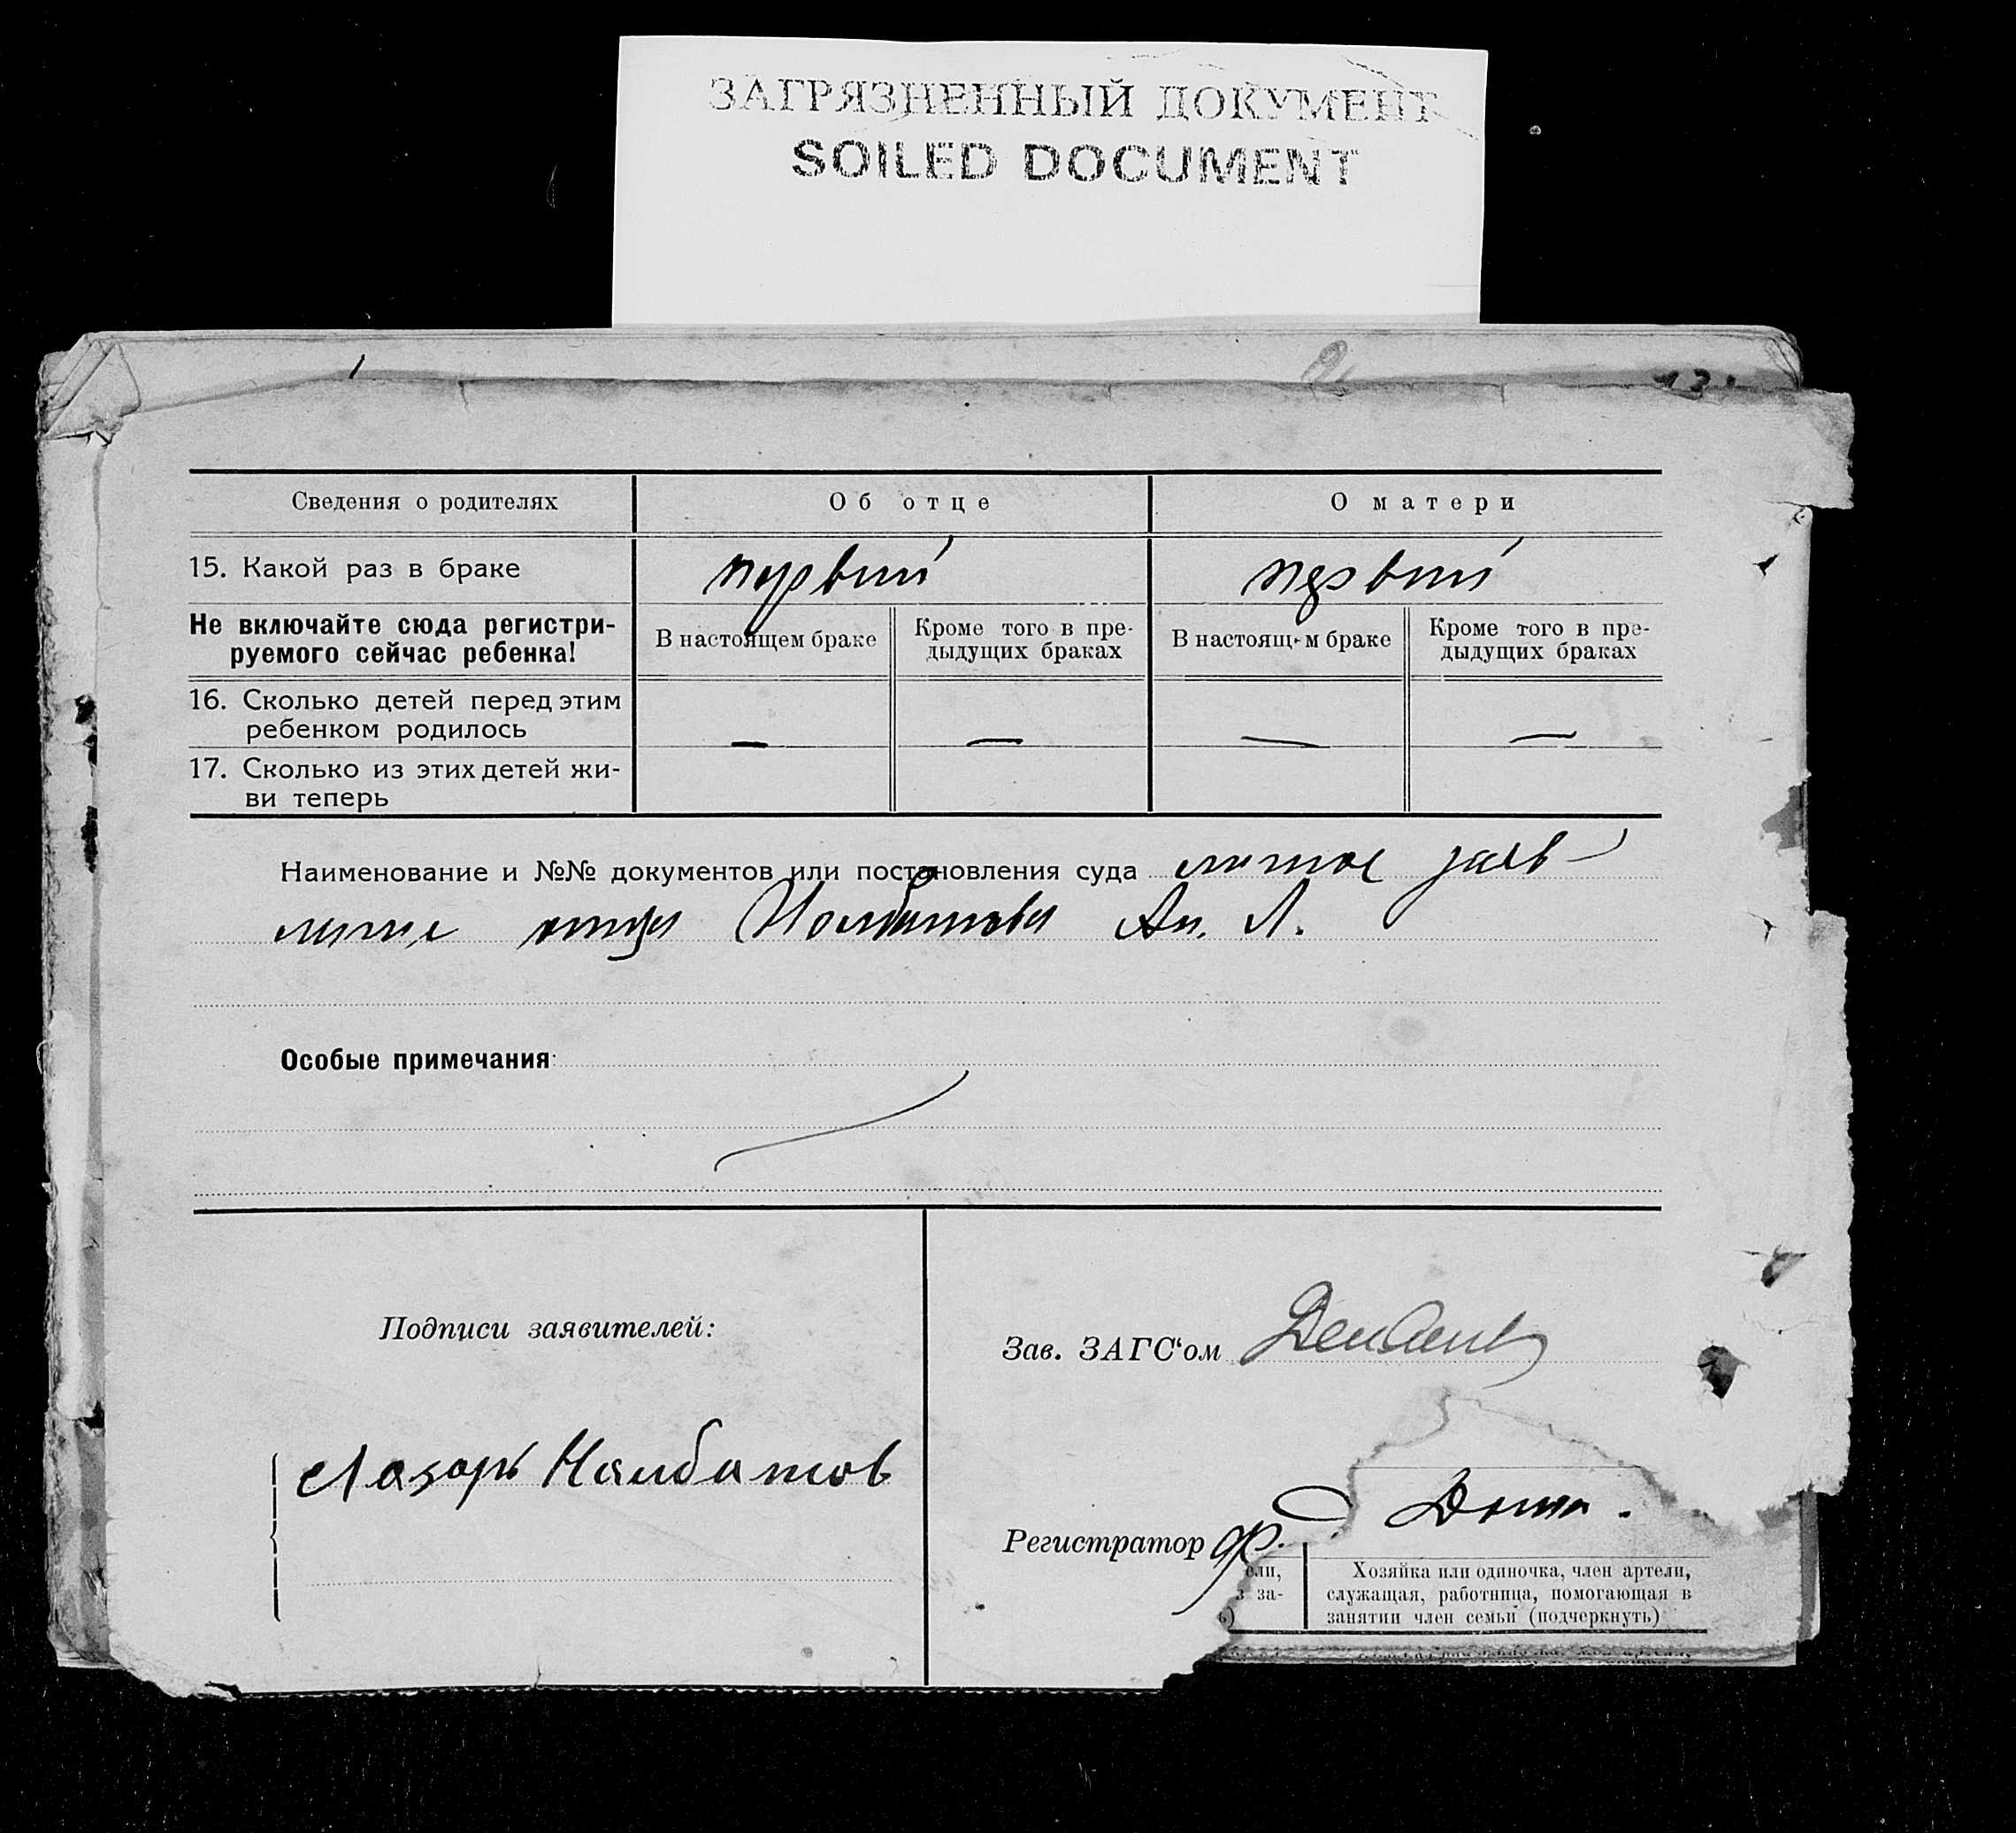 ЗАГРЯЗНЕННЫЙ ДОКУМЕНТ
SOILED DOCUMENT
Сведения о родителях
Об отце
О матери
15. Какой раз в браке
первый
первый
Не включайте сюда регистри-
руемого сейчас ребенка!
В настоящем браке
Кроме того в пре-
дыдущих браках
В настоящ-м браке
Кроме того в пре-
дыдущих браках
16. Сколько детей перед этим
ребенком родилось
— — — —
17. Сколько из этих детей жи-
ви теперь
Наименование и №№ документов или постановления суда личное заяв-
ление отца Налбатова Л.
Особые примечания:
Подписи заявителей:
Лазарь Налбатов
Зав. ЗАГС‘ом
Регистратор
Дома.
ели,
з за-
ь)
Хозяйка или одиночка, член артели,
служащая, работница, помогающая в
занятии член семьи (подчеркнуть)